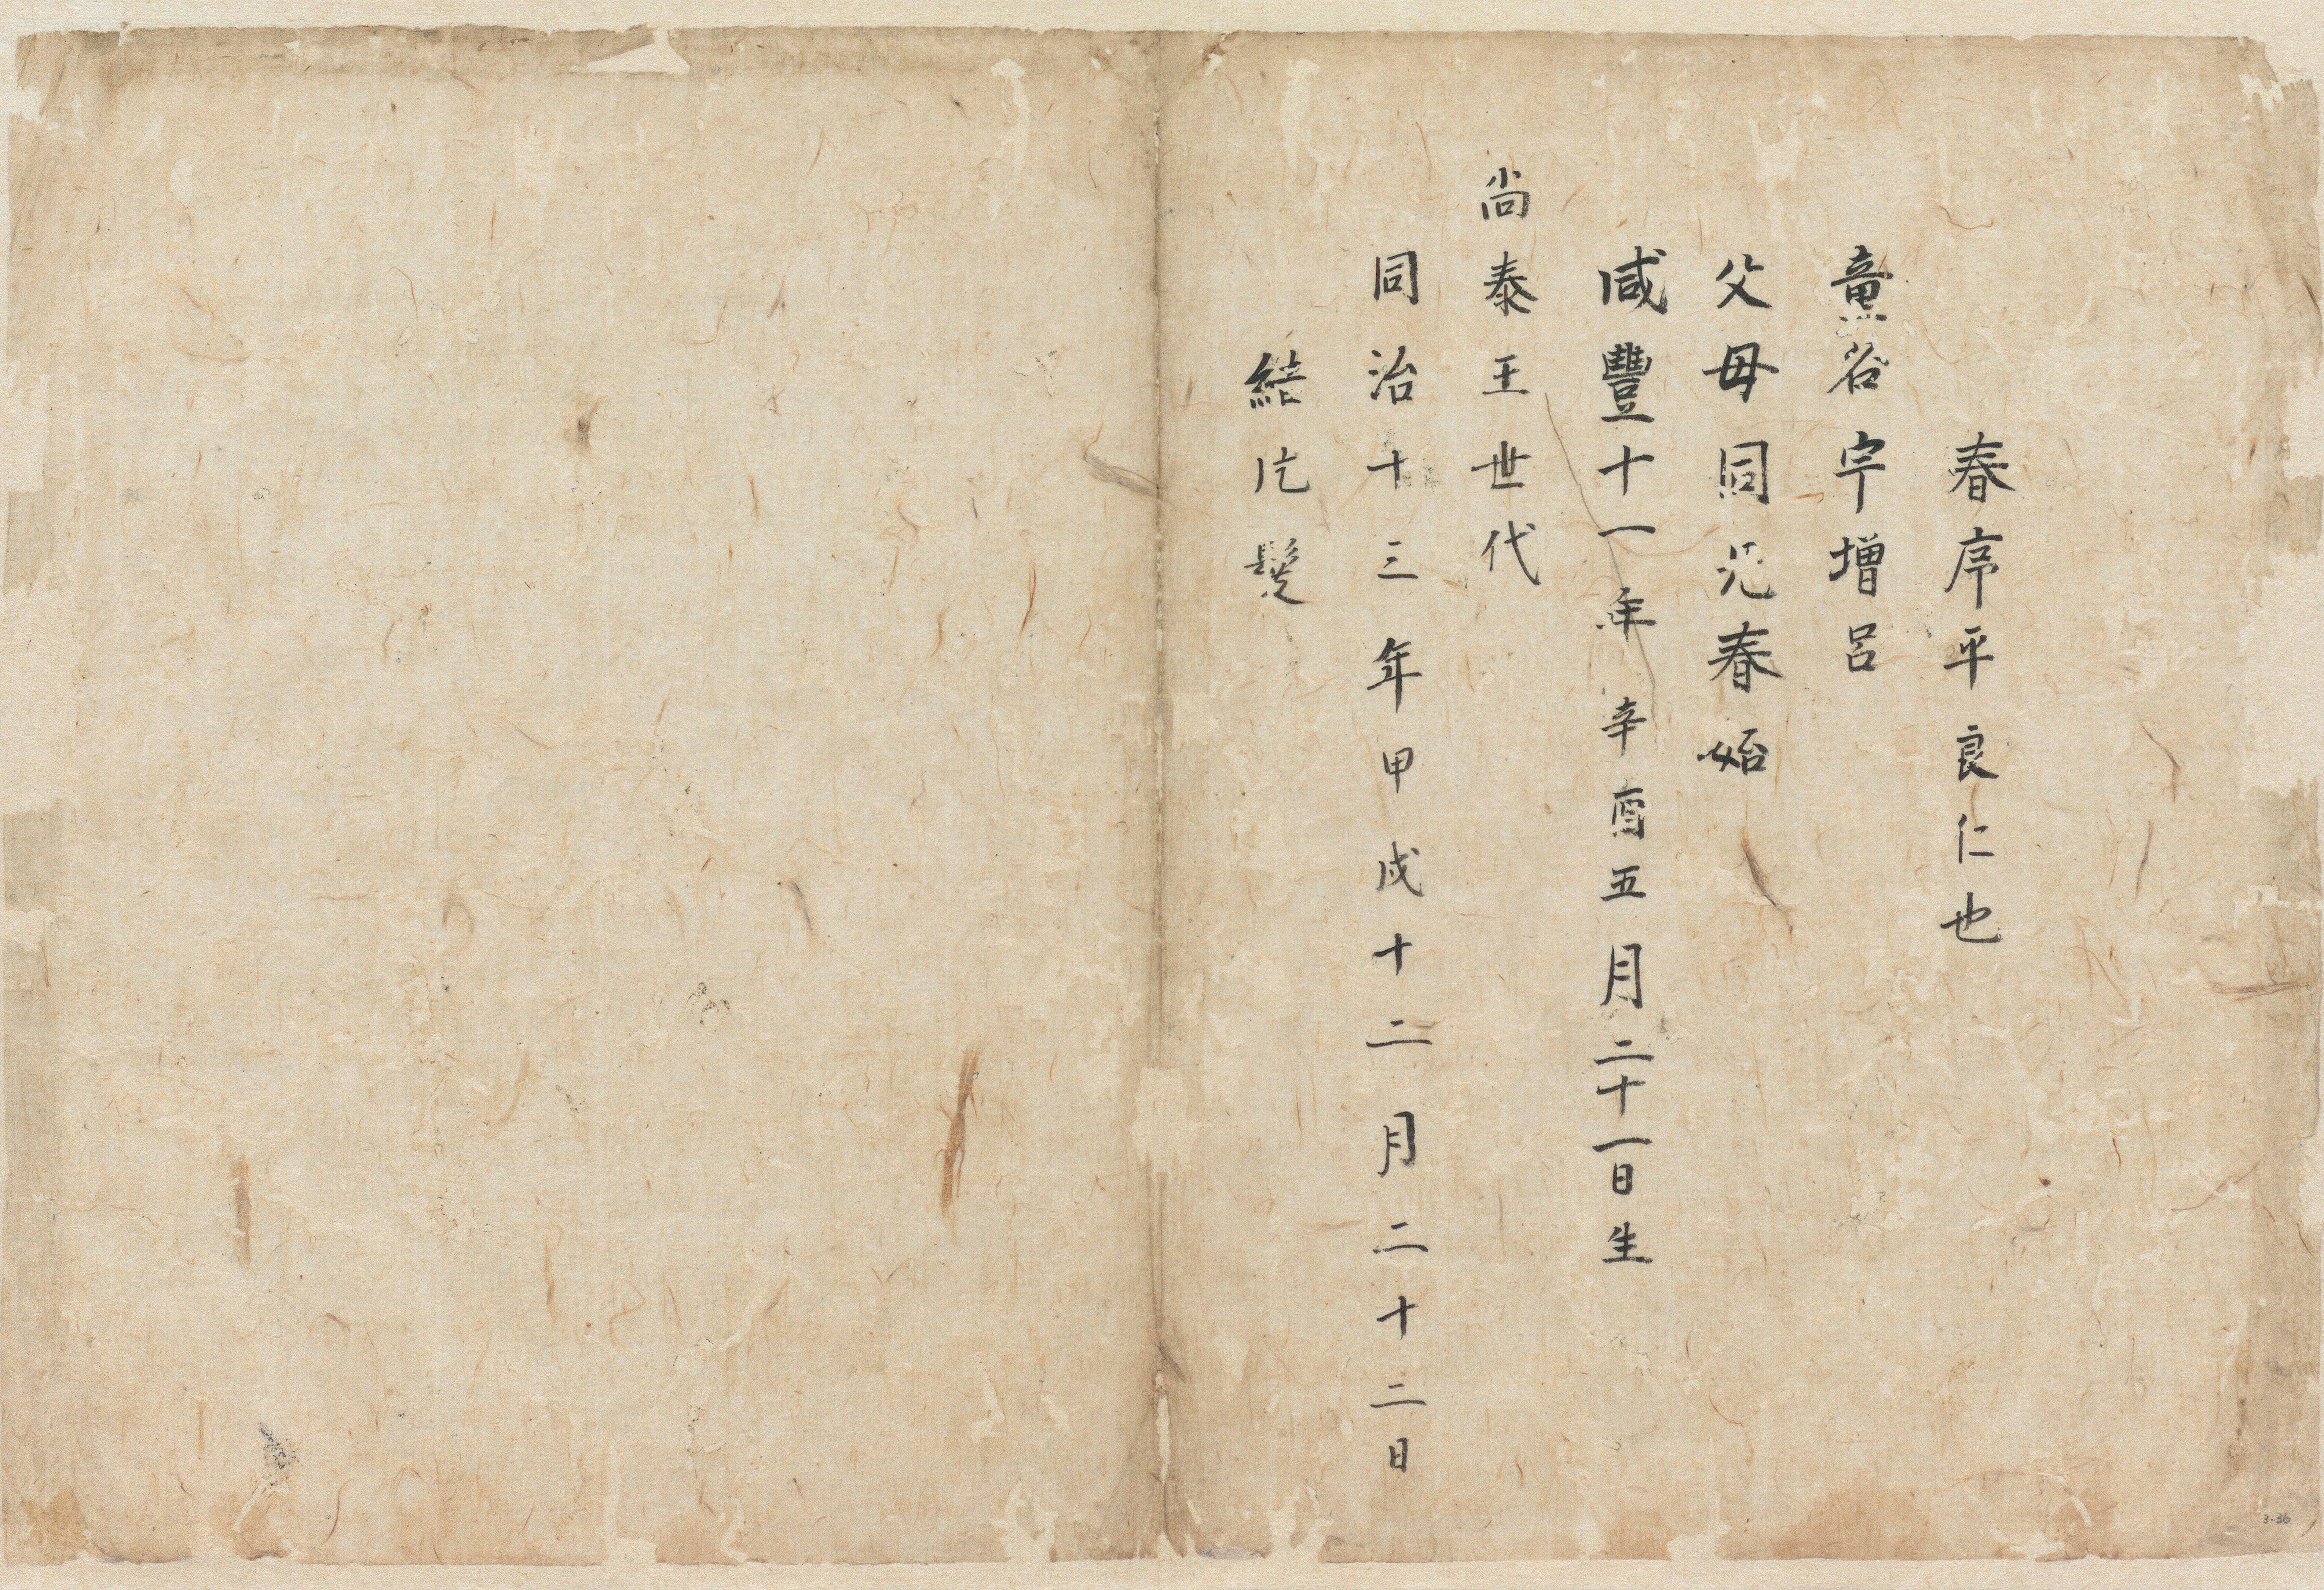 春序平良仁也
童名宇增呂
父母同兄春始
咸豐十一年辛酉五月二十一日生
尚泰王世代
同治十三年甲戌十二月二十二日
結片髮
3-36